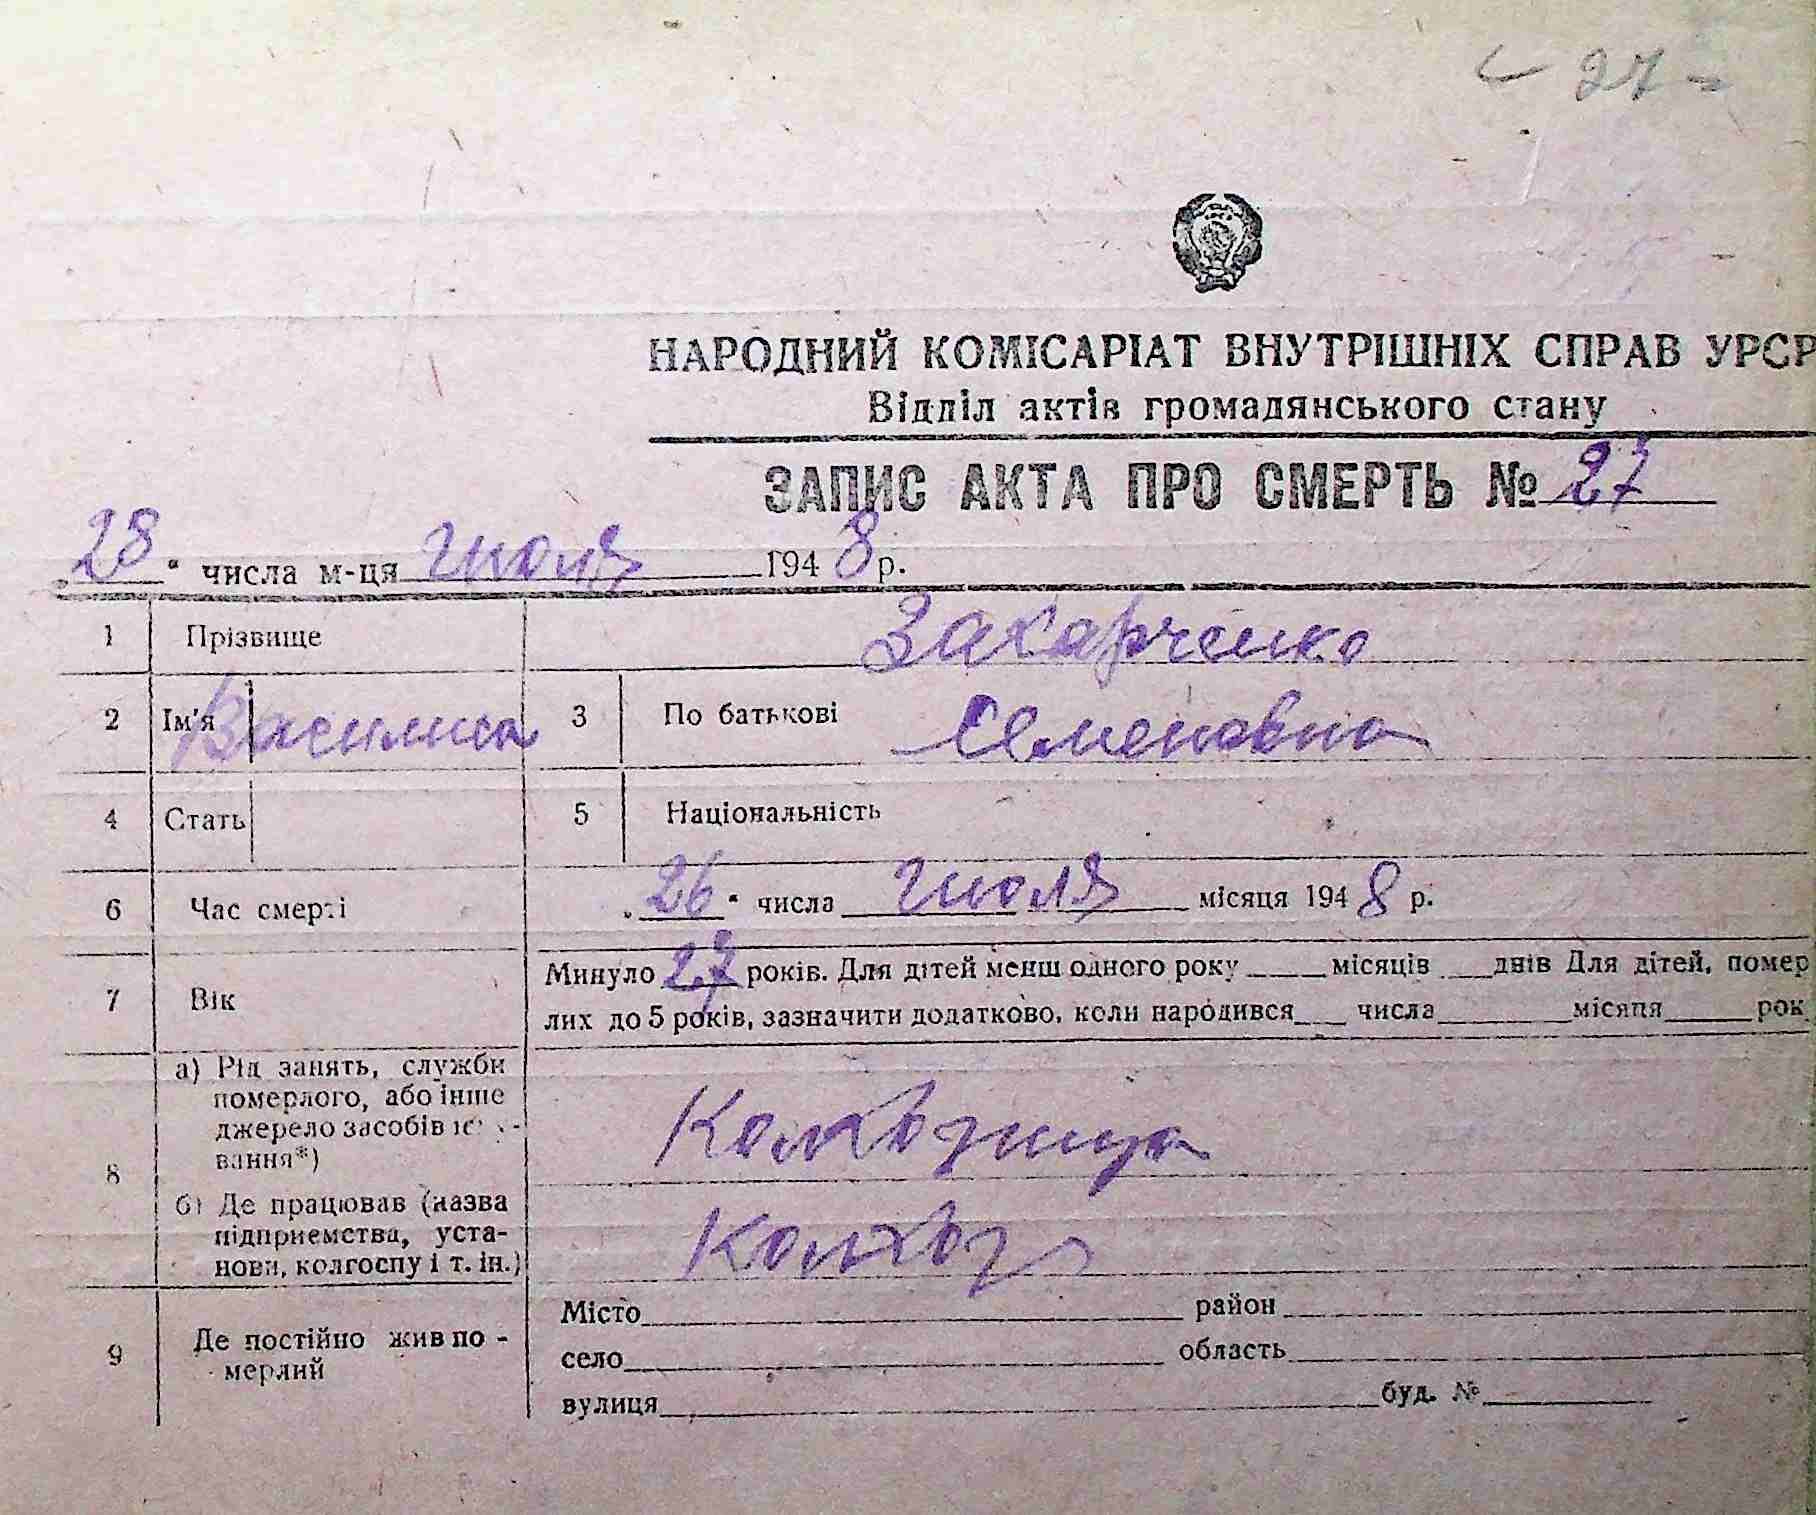 27 -
НАРОДНИЙ КОМІСАРІАТ ВНУТРІШНІХ СПРАВ УРСР
Відділ актів громадянського стану
ЗАПИС АКТА ПРО СМЕРТЬ № 27
„28“ числа м-ця июля 1948 р.
1 Прізвище Захарченко
2 Ім'я Василиса 3 По батькові Семеновна
4 Стать 5 Національність
6 Час смерті „26“ числа июля місяця 1948 р.
7 Вік Минуло 27 років. Для дітей менш одного року місяців днів Для дітей, помер
лих до 5 років, зазначити додатково, коли народився числа місяця рок
8 а) Рід занять, служби
померлого, або інше
джерело засобів існу-
вання*)
Колхозница
б) Де працював (назва
підприємства, уста-
нови, колгоспу і т. ін.)
Колхоз
9 Де постійно жив по-
мерлий
Місто район
село область
вулиця буд. №